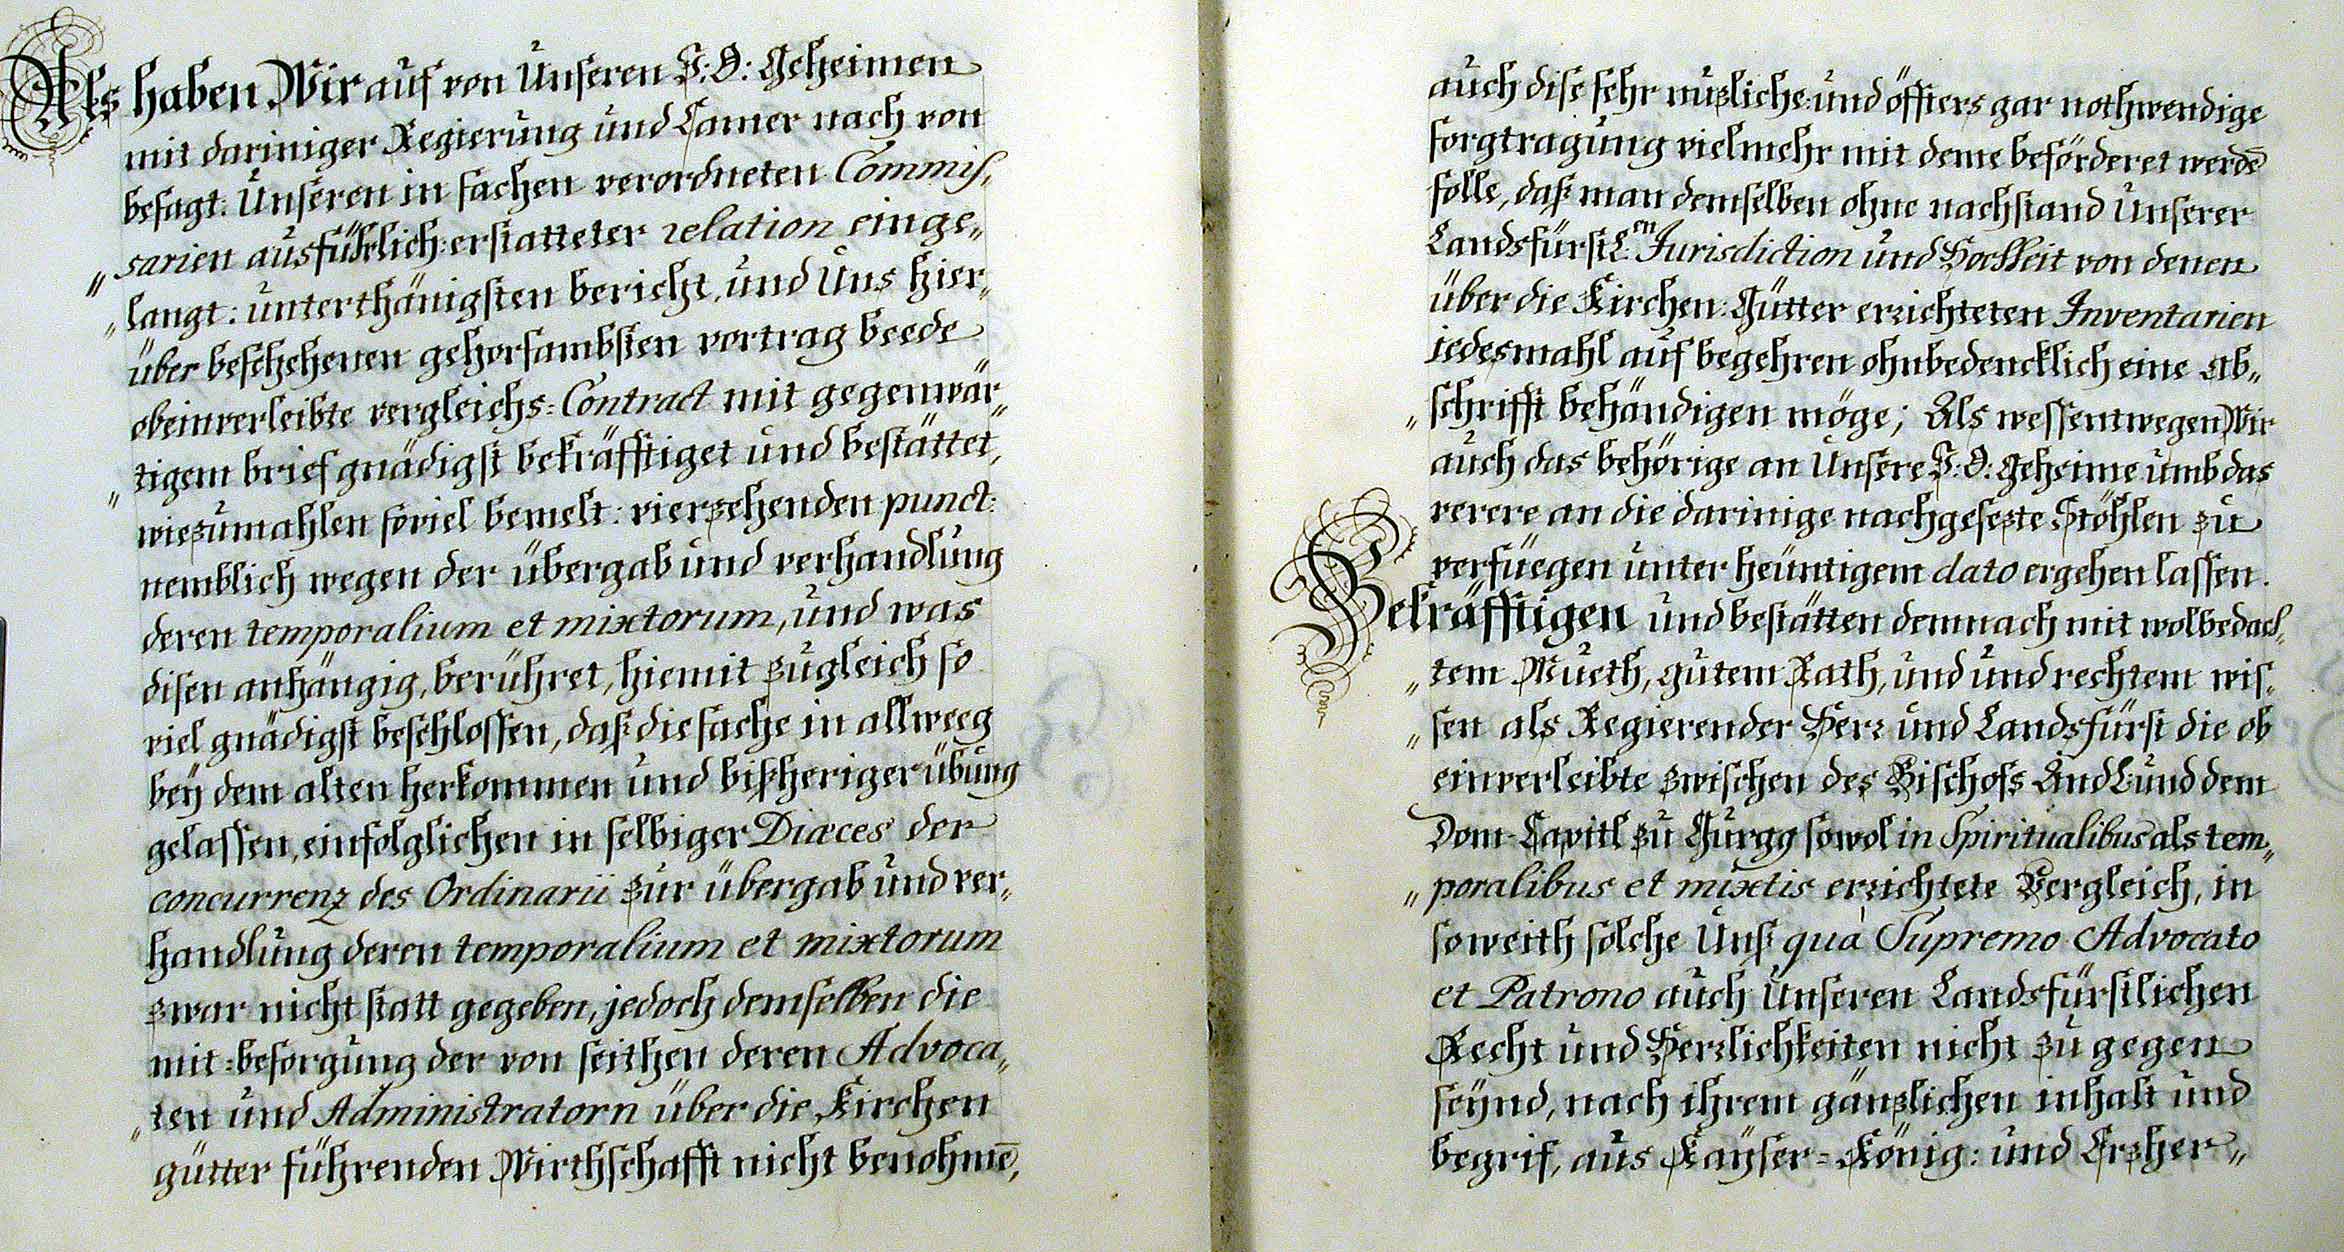 Als haben Wir auf von Unseren I: O: Geheimen
mit dariniger Regierung und Camer nach von
besagt: Unseren in sachen verordneten Commis„
„sarien ausführlich: erstatteter relation einge„
„langt: unterthänigsten bericht, und Uns hier„
über beschehenen gehorsambsten vortrag beede
obeinverleibte vergleichs=Contract mit gegenwär„
„tigem brief gnädigst bekräfftiget und bestättet,
wiezumahlen soviel bemelt: vierzehenden punct:
nemblich wegen der übergab und verhandlung
deren temporalium et mixtorum, und was
disen anhängig, berühret, hiemit zugleich so
viel gnädigst beschlossen, daß die sache in allweeg
bey dem alten herkommen und bißheriger übung
gelassen, einfolglichen in selbiger Diæces der
concurrenz des Ordinarii zur übergab und ver„
handlung deren temporalium et mixtorum
zwar nicht statt gegeben, jedoch demselben die
mit=besorgung der von seithen deren Advoca„
„ten und Administratorn über die Kirchen
gütter führenden Wirthschafft nicht benohmē,
auch dise sehr nuzliche: und öffters gar nothwendige
sorgtragung vielmehr mit deme beförderet werdē
solle, daß man demselben ohne nachstand Unserer
Landsfürstl:en Jurisdiction und Hochheit von denen
über die Kirchen: Gütter errichteten Inventarien
iedesmahl auf begehren ohnbedencklich eine Ab„
„schrifft behändigen möge; Als wessentwegen Wir
auch das behörige an Unsere I: O: Geheime umb das
verere an die darinige nachgesezte Stöhlen zu
verfüegen unter heüntigem dato ergehen lassen.
Bekräfftigen und bestätten demnach mit wolbedach„
„tem Mueth, gutem Rath, und und rechtem wis„
„sen als Regierender Herr und Landsfürst die ob
einverleibte zwischen des Bischofs Andl: und dem
Dom-Capitl zu Gurgg sowol in Spiritualibus als tem„
„poralibus et mixtis errichtete Vergleich, in
soweith solche Unß quà Supremo Advocato
et Patrono auch Unseren Landsfürstlichen
Recht und Herrlichkeiten nicht zu gegen
seynd, nach ihrem gänzlichen inhalt und
begrif, aus Kayser=König: und Erzher„